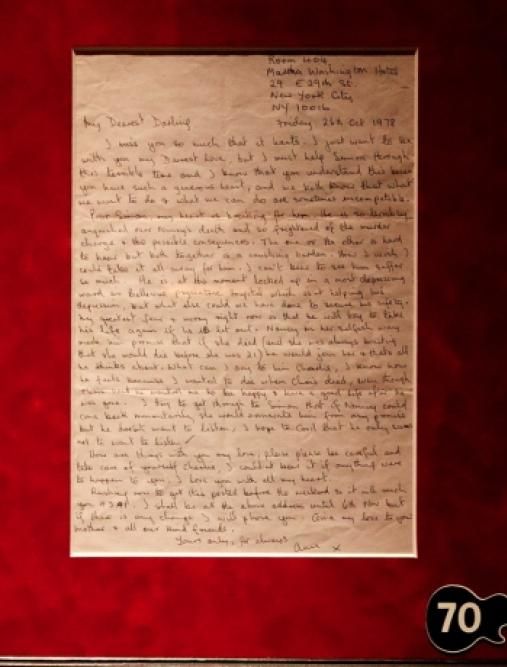 Room 404
Martha Washington Hotel
29 E 29th St.
New York City
NY 10016
My Dearest Darling Friday 26th Oct 1978
I miss you so much that it hurts. I just want to be
with you my Dearest love, but I must help Simon through
this terrible time and I know that you understand this because
you have such a generous heart, and we both know that what
we want to do & what we can do are sometimes incompatible.
Poor Simon, my heart is breaking for him. He is so terribly
anguished over Nancy's death and so frightened of the murder
charge & the possible consequences. The one or the other is hard
to bear but both together is a crushing burden. How I wish I
could take it all away for him. I can't bear to see him suffer
so much. He is at this moment locked up in a most depressing
ward in Bellevue psychiatric hospital which isn't helping his
depression, but what else could we have done to secure his safety.
My greatest fear & worry right now is that he will try to take
his life again if he is let out. Nancy in her selfish way
made him promise that if she died (and she was always insisting
that she would die before she was 21) he would join her & thats all
he thinks about. What can I say to him Charlie, I know how
he feels because I wanted to die when Chris died, even though
Chris he wanted me to be happy & have a good life after he
was gone. I try to get through to Simon that if Nancy could
come back momentarily she would him from any promises
but he doesn't want to listen, I hope to God that he only seems
not to want to listen
How are things with you my love, please please be careful and
take care of yourself cherie, I couldn't bear it if anything were
to happen to you. I love you with all my heart.
Rushing now to get this posted before the weekend so it will reach
you I shall be at the above address until 6th Nov but
if there is any change I will phone you. Give my love to your
mother & all our friends.
Yours only, for always
Anne x
70